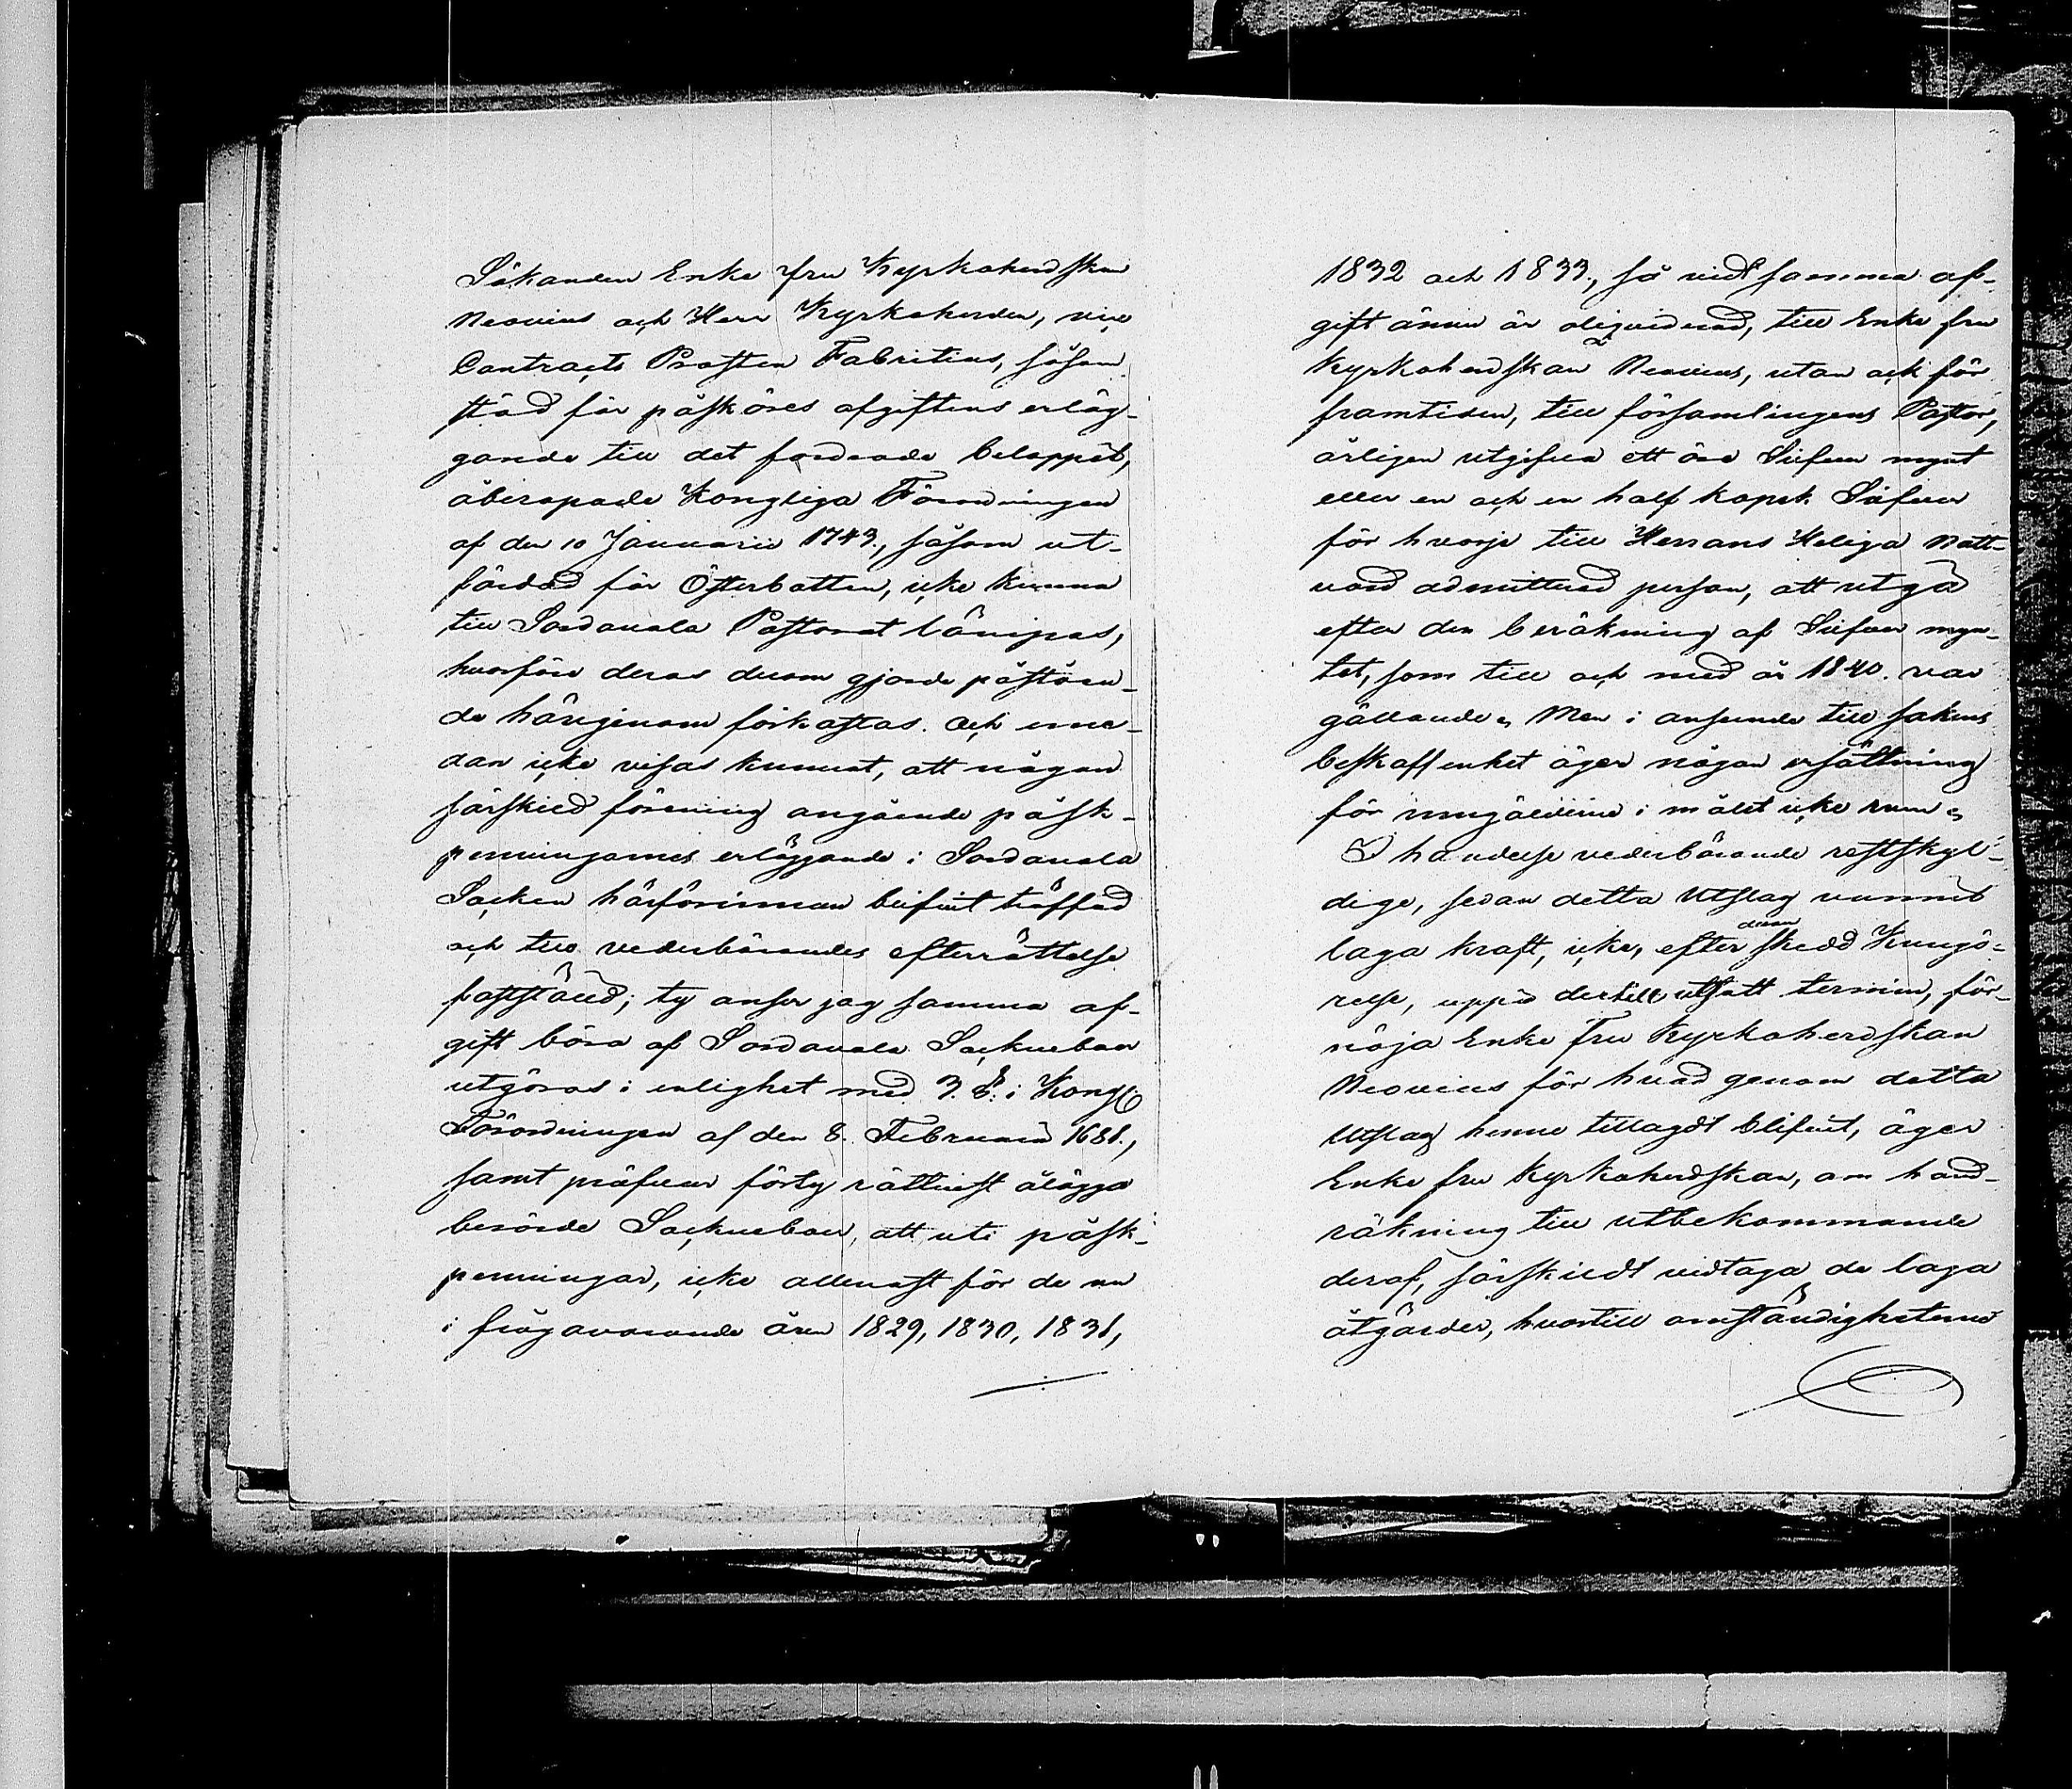 Sökanden Enke fru Kyrkoherdskan
Neovius och Herr Kyrkoherden, vice
Contracts Prosten Fabritius, såsom
stöd för påsköres afgiftens erläg-
gande till det fordrade beloppet,
åberopade Kongliga Förordningen
af den 10 Januarii 1743., såsom ut-
färdad för Österbotten, icke kunna
till Sordavala Pastorat lämpas,
hvarföre deras derom gjorde påståen-
de härigenom förkastas. Och eme-
dan icke visas kunnat, att någon
särskild förening angående påsk-
penningarnes erläggande i Sordavala
Socken härförinnan blifvit träffad
och till vederbörandes efterrättelse
fastställd; ty anser jag samma af-
gift böra af Sordavala Sockneboer
utgöras i enlighet med 3. §. i Kongl
Förordningen af den 8. Februarii 1681.,
samt pröfvar förty rättvist ålägga
berörde Sockneboer, att uti påsk-
penningar, icke allenast för de nu
i frågavarande åren 1829, 1830, 1831,
1832 och 1833., så vidt samma af-
gift ännu är oliqviderad, till Enke fru
Kyrkoherdskan Neovius, utan ock för
framtiden, till församlingens Pastor,
årligen utgifva ett öre Silfver mynt
eller en och en half kopek Silfver
för hvarje till Herrans Heliga Natt-
vard admitterad person, att utgå
efter den beräkning af Silfver myn-
tet, som till och med år 1840. var
gällande. Men i anseende till sakens
beskaffenhet äger någon ersättning
för rungälderne i målet icke rum.
I händelse vederbörande restskyl-
dige, sedan detta Utslag vunnit
laga kraft, icke, efter derom skedd Kungö-
relse, uppå dertill utsatt termin, för-
nöja Enke Fru Kyrkoherdskan
Neovius för hvad genom detta
Utslag henne tillagdt blifvit, äger
Enke fru Kyrkoherdskan, om hand-
räkning till utbekommande
deraf, särskildt vidtaga de laga
åtgärder, hvartill omständigheterne